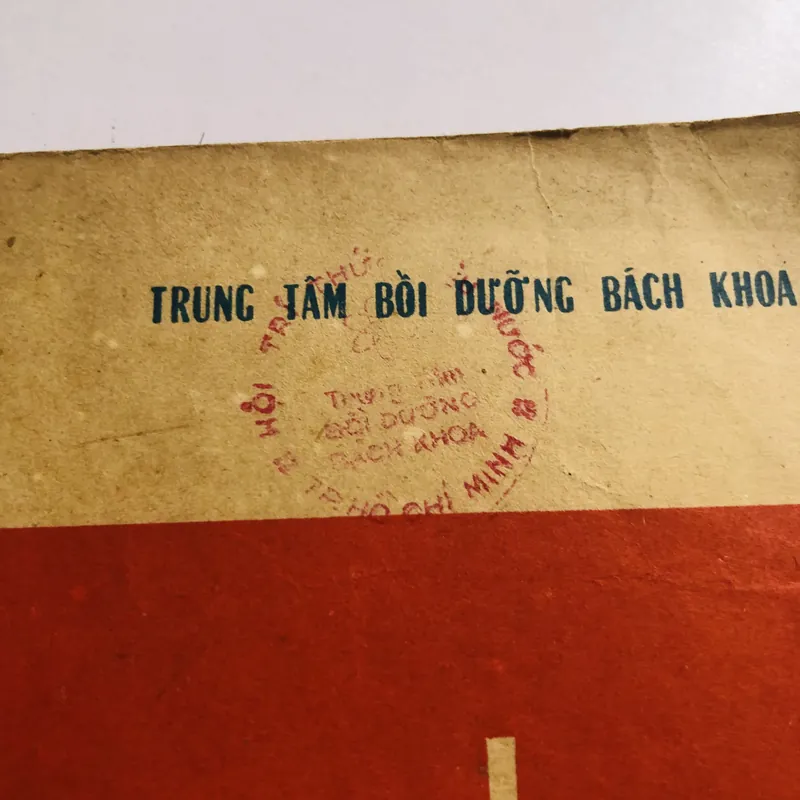 TRUNG TÂM BỒI DƯỠNG BÁCH KHOA
HỘI TRÍ THỨC NƯỚC
Trung tâm
BỒI DƯỠNG
BÁCH KHOA
TP.HỒ CHÍ MINH